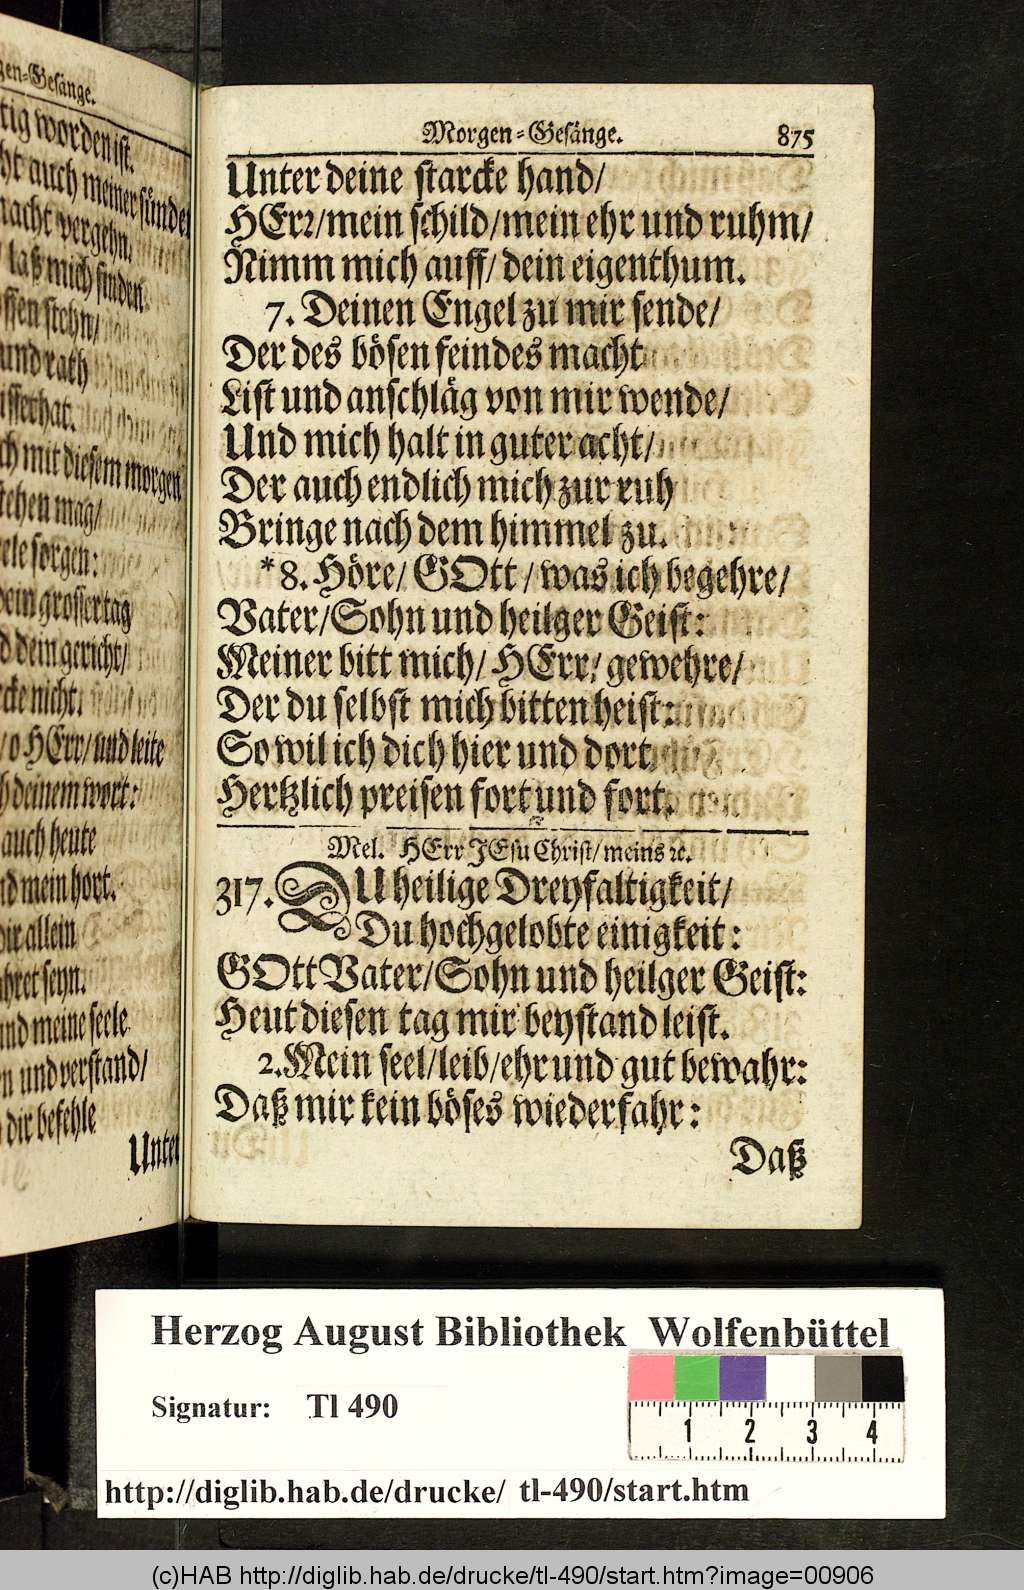 gen-Gesänge.
tig worden ist.
auch meiner sünden
nacht vergehn.
laß mich finden
offen stehn/
und rath
mit diesem morgen
sorgen:
dein grosser tag
dein gericht/
nicht.
/o HErr/ und leite
deinem wort:
auch heute
mein hort.
dir allein
seyn.
und meine seele
und verstand/
dir befehle
Unter
Morgen-Gesänge. 875
Unter deine starcke hand/
HErr/mein schild/mein ehr und ruhm/
Nimm mich auff/ dein eigenthum.
7. Deinen Engel zu mir sende/
Der des bösen feindes macht
List und anschläg von mir wende/
Und mich halt in guter acht/
Der auch endlich mich zur ruh
Bringe nach dem himmel zu.
*8. Höre/ GOtt/ was ich begehre/
Vater/Sohn und heilger Geist:
Meiner bitt mich/ HErr/ gewehre/
Der du selbst mich bitten heist:
So wil ich dich hier und dort
Hertzlich preisen fort und fort.
Mel. HErr JEsu Christ/ meins ꝛc.
317. DU heilige Dreyfaltigkeit/
Du hochgelobte einigkeit:
GOtt Vater/Sohn und heilger Geist:
Heut diesen tag mir beystand leist.
2. Mein seel/leib/ehr und gut bewahr:
Daß mir kein böses wiederfahr:
Daß
Herzog August Bibliothek Wolfenbüttel
Signatur: Tl 490
1 2 3 4
http://diglib.hab.de/drucke/ tl-490/start.htm
(c)HAB http://diglib.hab.de/drucke/tl-490/start.htm?image=00906